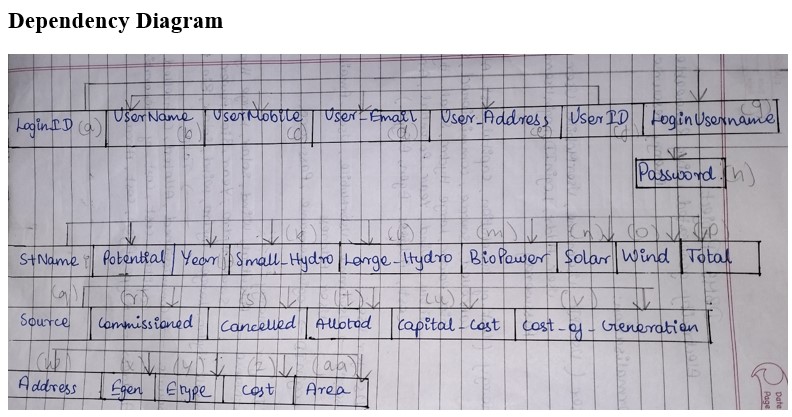 Dependency Diagram
LoginID (a) UserName (b) UserMobile (c) User_Email (d) User_Address (e) UserID LoginUsername (g)
Password (h)
StName Potential Year Small_Hydro (k) Large_Hydro (l) BioPower (m) Solar (n) Wind (o) Total (p
Source (q) Commissioned (r) Cancelled (s) Alloted (t) Capital-cost (u) Cost-of-Generation (v)
Address (w) Egen (x) Etype (y) Cost (z) Area (aa)
Date
Page